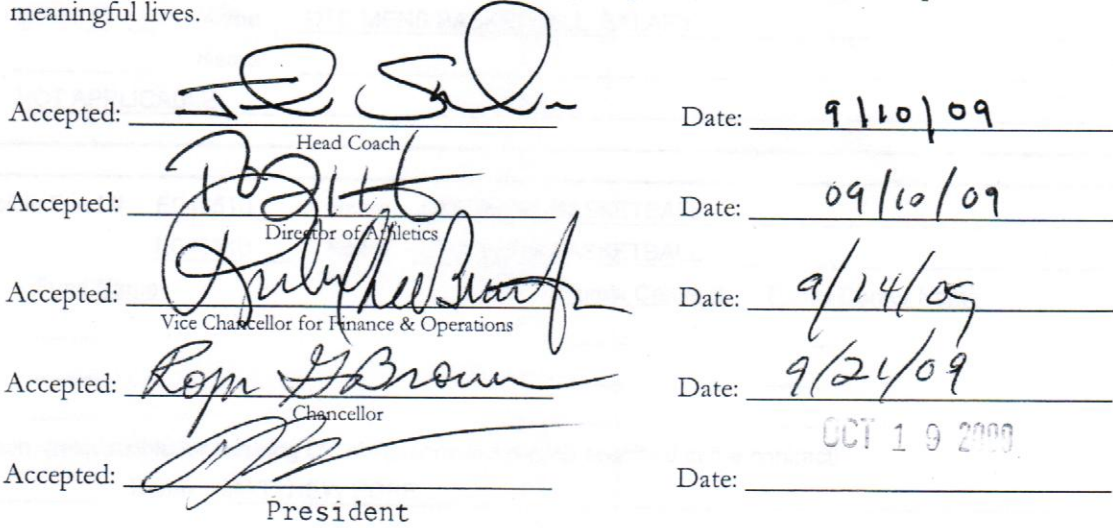 meaningful lives.
Accepted: Date: 9/10/09
Head Coach
Accepted: Date: 09/10/09
Director of Athletics
Accepted: Date: 9/14/09
Vice Chancellor for Finance & Operations
Accepted: Roger G Brown Date: 9/21/09
Chancellor
OCT 19
Accepted: Date:
President